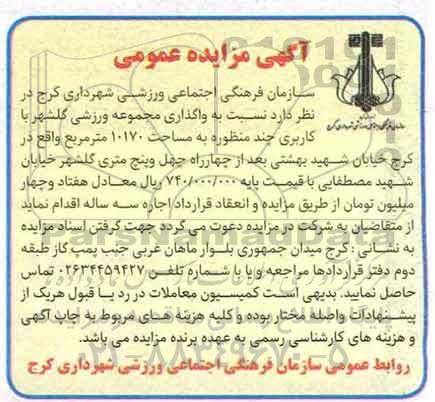 آگهی مزایده عمومی
سازمان فرهنگی اجتماعی ورزشی شهرداری کرج در
نظر دارد نسبت به واگذاری مجموعه ورزشی گلشهر با
کاربری چند منظوره به مساحت ۱۰۱۷۰ مترمربع واقع در
کرج خیابان شهید بهشتی بعد از چهارراه چهل وپنج متری گلشهر خیابان
شهید مصطفایی با قیمت پایه ۷۴۰/۰۰۰/۰۰۰ ریال معادل هفتاد وچهار
میلیون تومان از طریق مزایده و انعقاد قرارداد اجاره سه ساله اقدام نماید
از متقاضیان به شرکت در مزایده دعوت می گردد جهت گرفتن اسناد مزایده
به نشانی : کرج میدان جمهوری بلوار ماهان غربی جنب پمپ گاز طبقه
دوم دفتر قراردادها مراجعه و یا با شماره تلفن ۰۲۶۳۴۴۵۹۴۲۷ تماس
حاصل نمایید. بدیهی است کمیسیون معاملات در رد یا قبول هریک از
پیشنهادات واصله مختار بوده و کلیه هزینه های مربوط به چاپ آگهی
و هزینه های کارشناسی رسمی به عهده برنده مزایده می باشد.
روابط عمومی سازمان فرهنگی اجتماعی ورزشی شهرداری کرج
۰۲۱-۸۸۳۴۹۶۷۰-۵